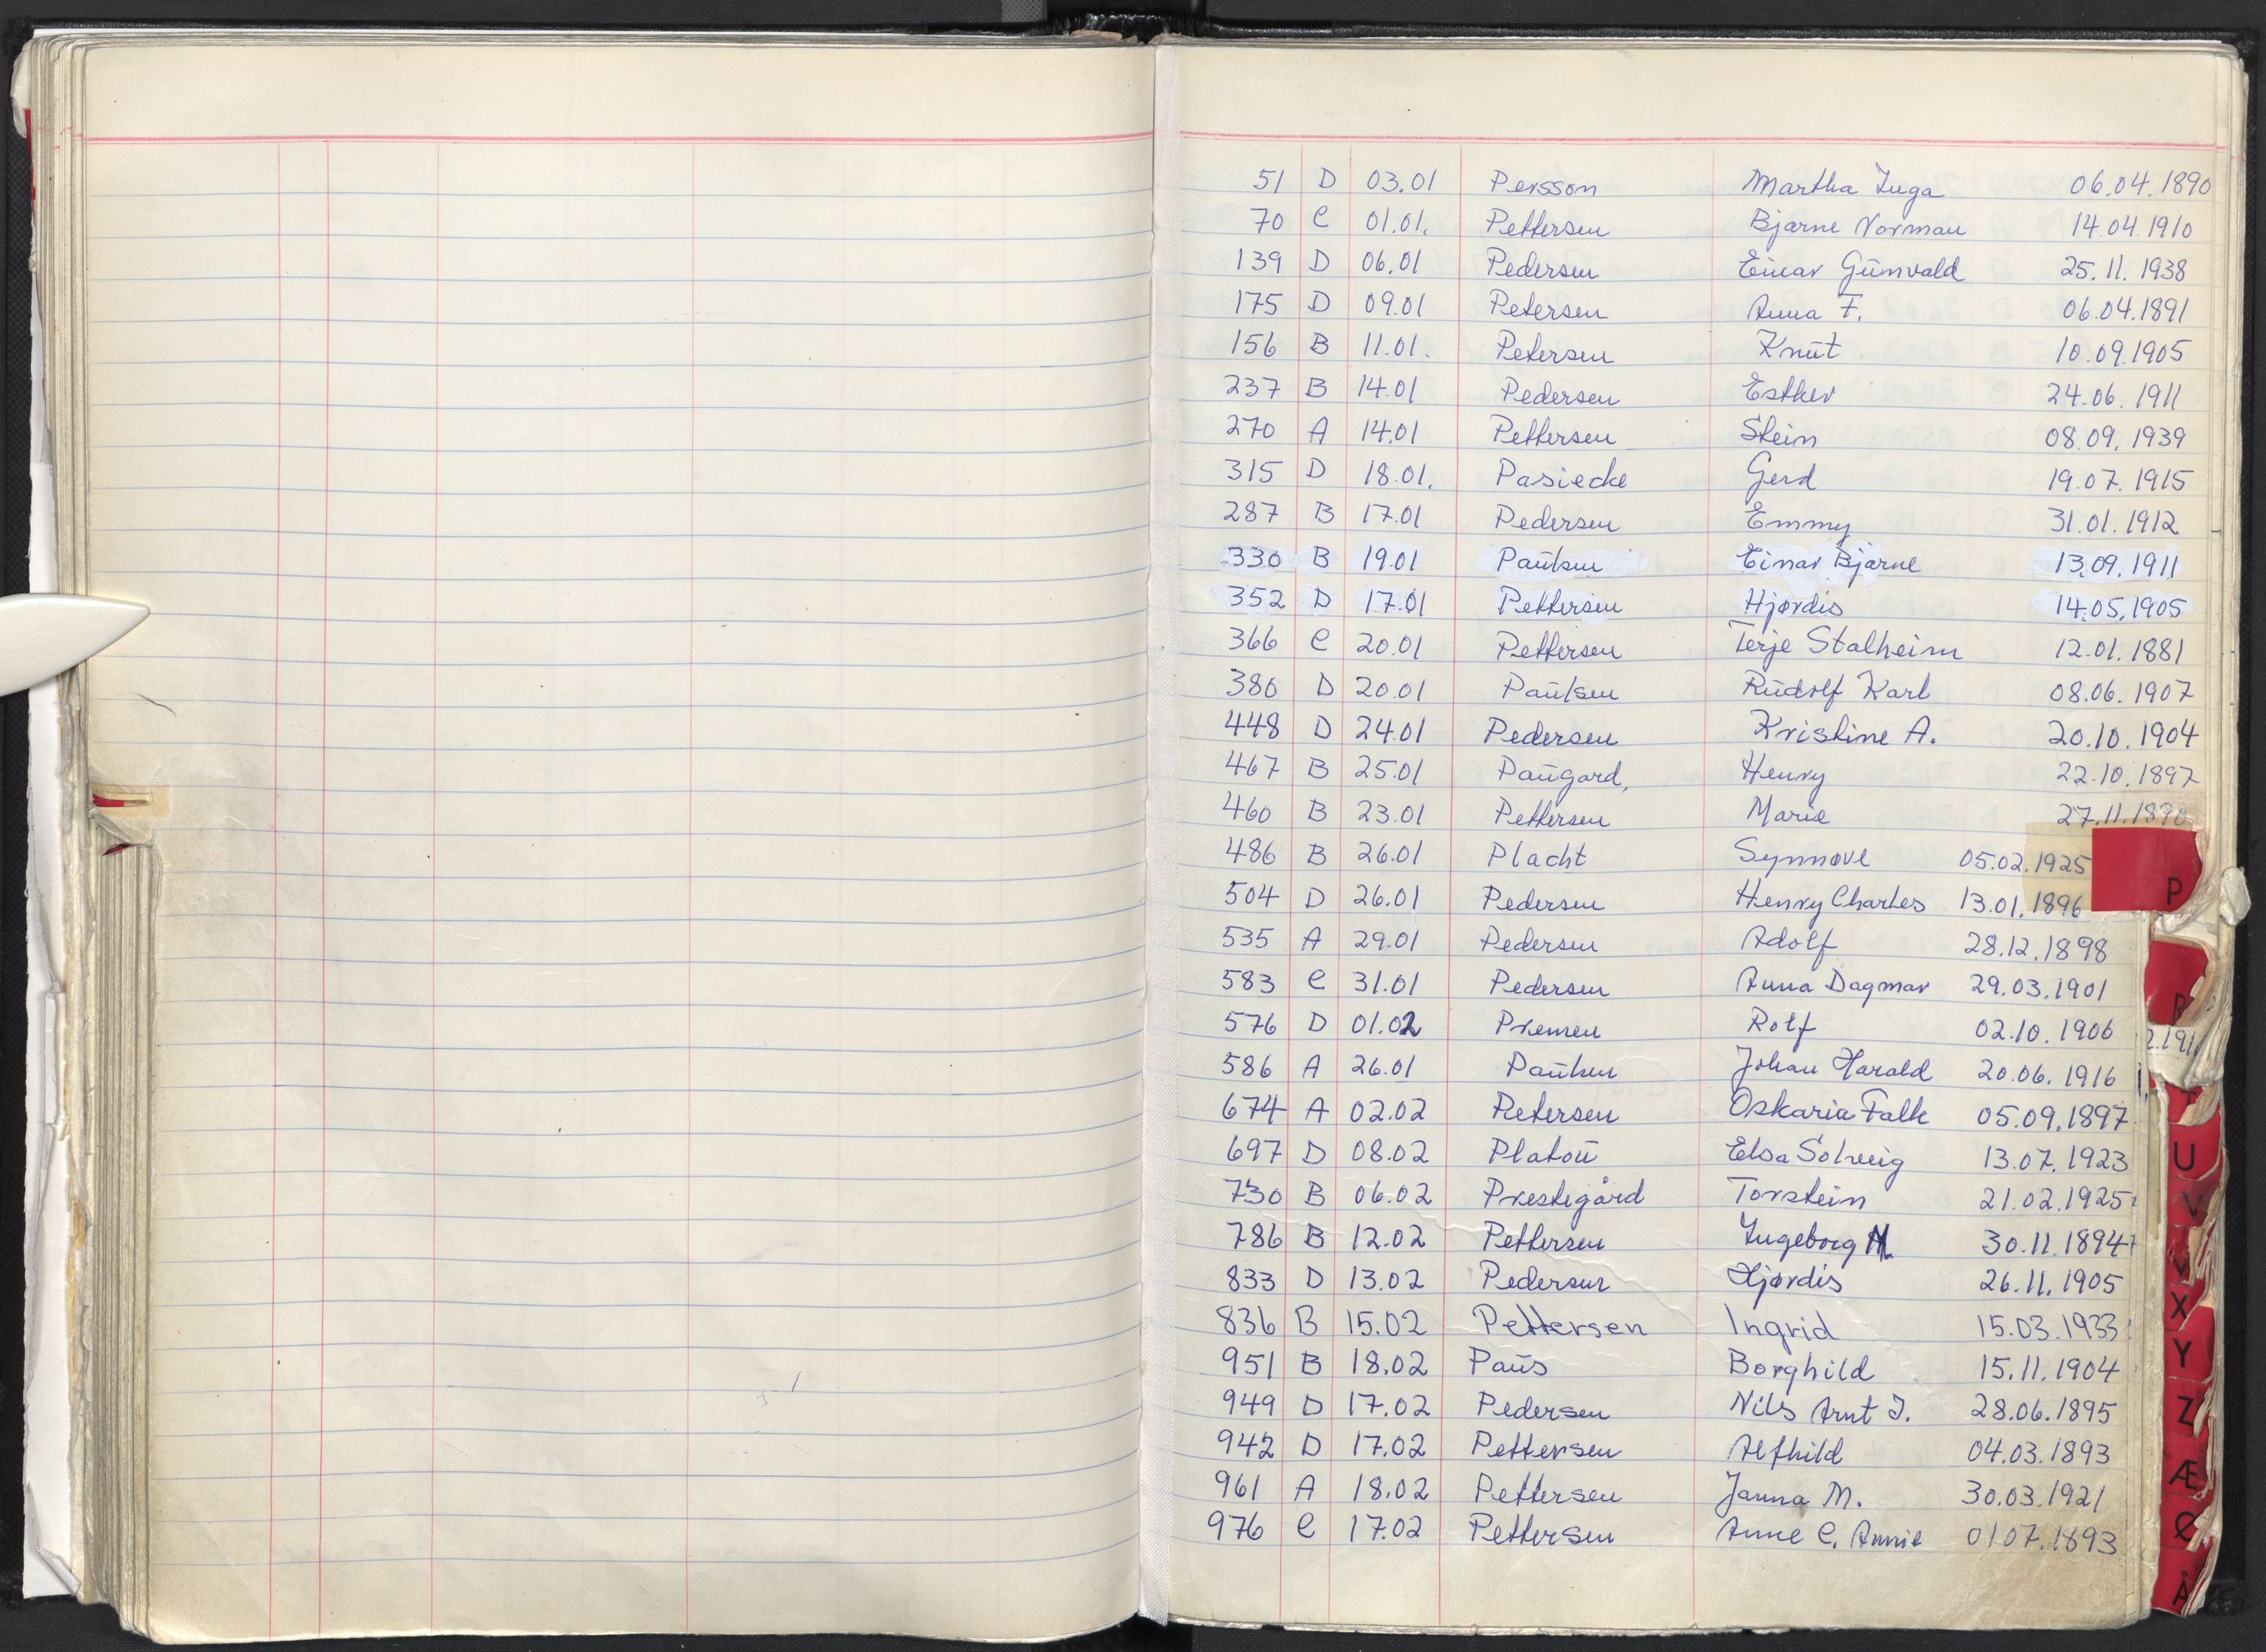 51 D 03.01 Persson Martha Inga 06.04.1890
70 C 01.01. Pettersen Bjarne Norman 14.04.1910
139 D 06.01 Pedersen Einar Gunvald 25.11.1938
175 D 09.01 Petersen Anna F. 06.04.1891
156 B 11.01. Petersen Knut 10.09.1905
237 B 14.01 Pedersen Esther 24.06.1911
270 A 14.01 Pettersen Stein 08.09.1939
315 D 18.01. Pasiecke Gerd 19.07.1915
287 B 17.01 Pedersen Emmy 31.01.1912
330 B 19.01 Paulsen Einar Bjarne 13.09.1911
352 D 17.01 Pettersen Hjørdis 14.05.1905
366 C 20.01 Pettersen Terje Stalheim 12.01.1881
380 D 20.01 Paulsen Rudolf Karl 08.06.1907
448 D 24.01 Pedersen Kristine A. 20.10.1904
467 B 25.01 Paugard, Henry 22.10.1897
460 B 23.01 Pettersen Marie 27.11.1890
486 B 26.01 Placht Synnøve 05.02.1925
P
504 D 26.01 Pedersen Henry Charles 13.01.1896
535 A 29.01 Pedersen Adolf 28.12.1898
583 C 31.01 Pedersen Anna Dagmar 29.03.1901
R
576 D 01.02 Premen Rolf 02.10.1906
586 A 26.01 Paulsen Johan Harald 20.06.1916
674 A 02.02 Petersen Oskaria Falk 05.09.1897
697 D 08.02 Platou Elsa Solveig 13.07.1923
U
730 B 06.02 Prestegård Torstein 21.02.1925
V
786 B 12.02 Pettersen Ingeborg M. 30.11.1894
833 D 13.02 Pedersen Hjørdis 26.11.1905
X
836 B 15.02 Pettersen Ingrid 15.03.1933
951 B 18.02 Paus Borghild 15.11.1904
Y
949 D 17.02 Pedersen Nils Arnt J. 28.06.1895
Z
942 D 17.02 Pettersen Alfhild 04.03.1893
Æ
961 A 18.02 Pettersen Janna M. 30.03.1921
976 C 17.02 Pettersen Anne C. Annie 01.07.1893
Ø
Å